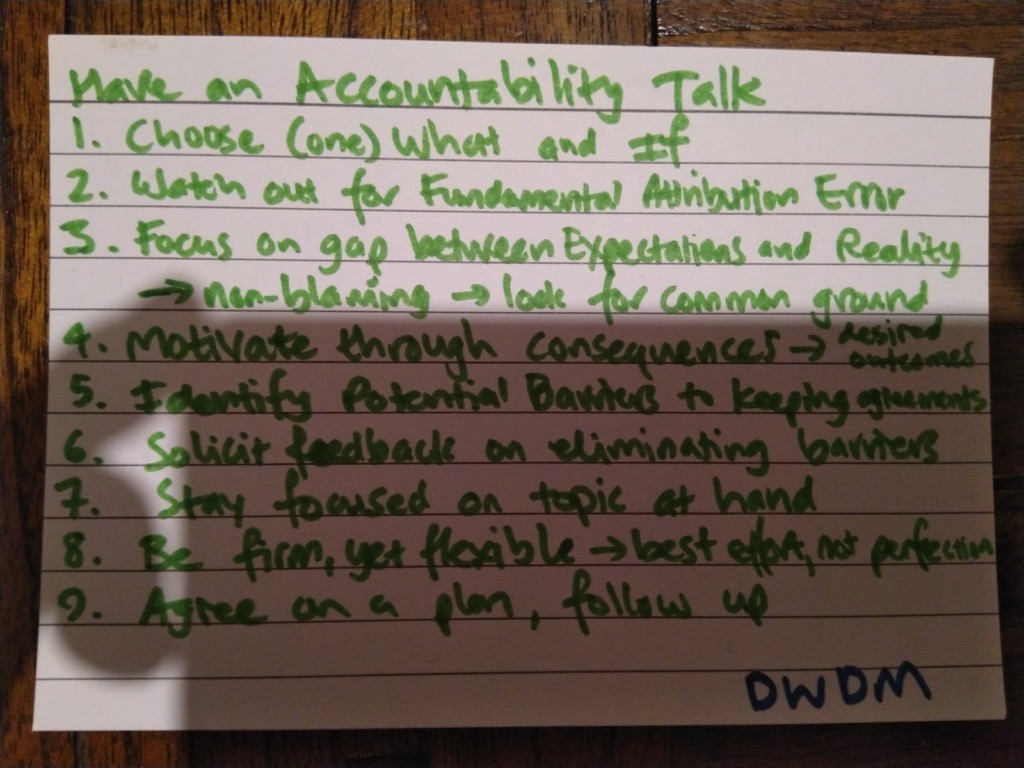 Have an Accountability Talk
1. Choose (one) What and If
2. Watch out for Fundamental Attribution Error
3. Focus on gap between Expectations and Reality
→ non-blaming → look for common ground
4. Motivate through consequences → desired outcomes
5. Identify Potential Barriers to keeping agreements
6. Solicit feedback on eliminating barriers
7. Stay focused on topic at hand
8. Be firm, yet flexible → best effort, not perfection
9. Agree on a plan, follow up
DWDM